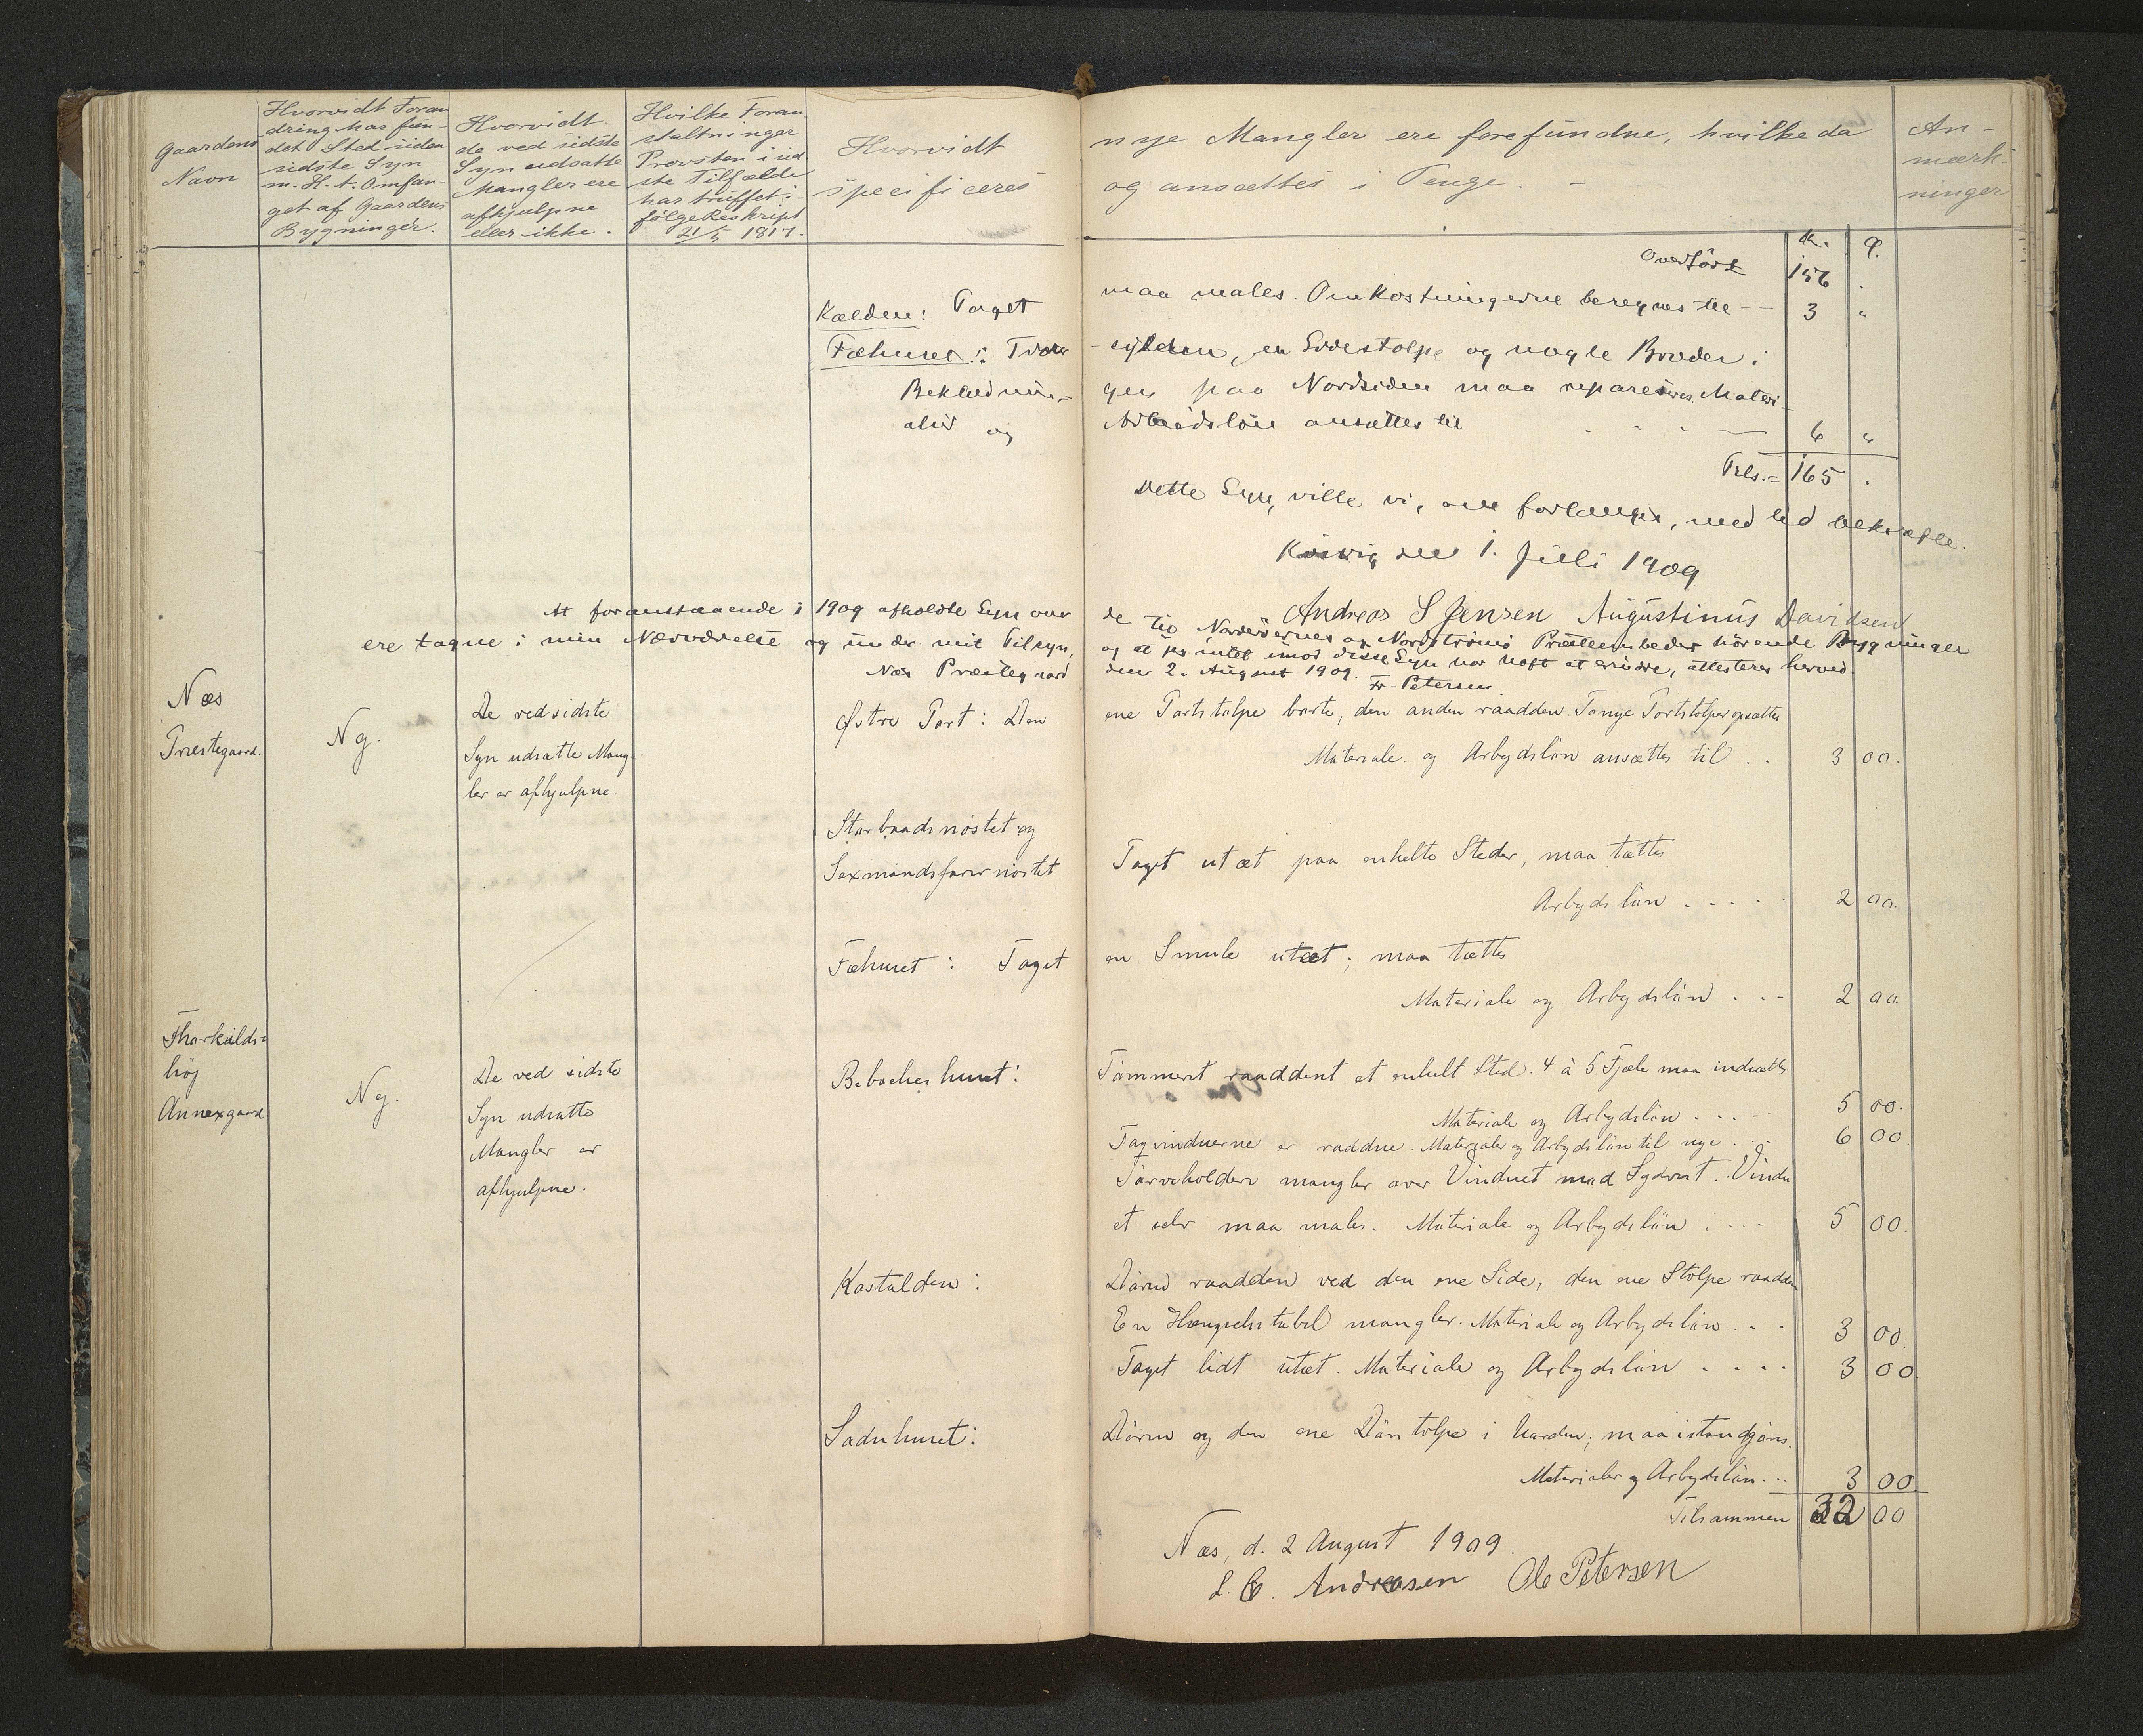 Gaardens
Navn
Hvorvidt Foran
dring har fun-
det Sted siden
sidste Syn
m. H. t. Omfan-
get af Gaardens
Bygninger.
Hvorvidt
de ved sidste
Syn udsatte
Mangler ere
afhjulpne
eller ikke.
Hvilke Foran
staltninger
Provsten i sid
ste Tilfælde
har truffet i-
følge Reskript
21/5 1817.
Hvorvidt
specificeres
nye Mangler ere forefundne, hvilke da
og ansættes i Penge. -
An-
mærk-
ninger
Kr. Ø.
Overført 156 .
Kælden: Taget maa males. Omkostningerne beregnes til -- 3 "
Fæhuset: Tvær -sylden, en Sidestolpe og nogle Bræder i
Beklædnin- gen paa Nordsiden maa repareres. Materi-
alier og Arbeidsløn ansættes til - - - 6 "
Tils.= 165 .
Dette Syn, ville vi, om forlanges, med Ed bekræfte.
den 1. Juli 1909
Andreas S Jensen Augustinus Davidsen
At foranstaaende i 1909 afholdte Syn over de til Norderøernes og Nordstrømø Præsteembeder hørende Bygninger
ere tagne i min Nærværelse og under mit Tilsyn, og at jeg intet imod disse Syn har haft at erindre, attesteres herved.
Næs Præstegaard den 2. August 1909.
Fr. Petersen
Næs
Præstegaard.
Nej.
De ved sidste
Syn udsatte Mang-
ler er afhjulpne.
Østre Port: Den ene Portstolpe borte, den anden raadden. To nye Portstolper opsættes
Materiale og Arbejdsløn ansættes til . . 3 00.
Storbaadsnøstet og
Sexmandsfarsnøstet Taget utæt paa enkelte Steder, maa tættes
Arbejdsløn . . . . . 2 00.
Fæhuset: Taget en Smule utæt; maa tættes
Materiale og Arbejdsløn . . - 2 00
Thorkilds-
høj
Annexgaard
Nej.
De ved sidste
Syn udsatte
Mangler er
afhjulpne.
Beboelseshuset: Tømmeret raaddent et enkelt Sted. 4 à 5 Fjæle maa indsættes
Materiale og Arbejdsløn . . . - - 5 00.
Tagvinduerne er raddne. Materialer og Arbejdsløn til nye . . - 6 00
Tørveholderen mangler over Vinduet mod Sydvest. Vindu
et selv maa males. Materiale og Arbejdsløn . . . - 5 00.
Kostalden: Døren raadden ved den ene Side, den ene Stolpe raadden
En Hængselstabel mangler. Materiale og Arbejdsløn . . - 3 00.
Taget lidt utæt. Materiale og Arbejdsløn . . . . 3 00.
Sodnhuset: Døren og den ene Dørstolpe i maa istandgøres.
Materialer og Arbejdsløn. . . 3 00
Tilsammen 32 00
Næs, d. 2 August 1909.
Andreasen Ole Petersen